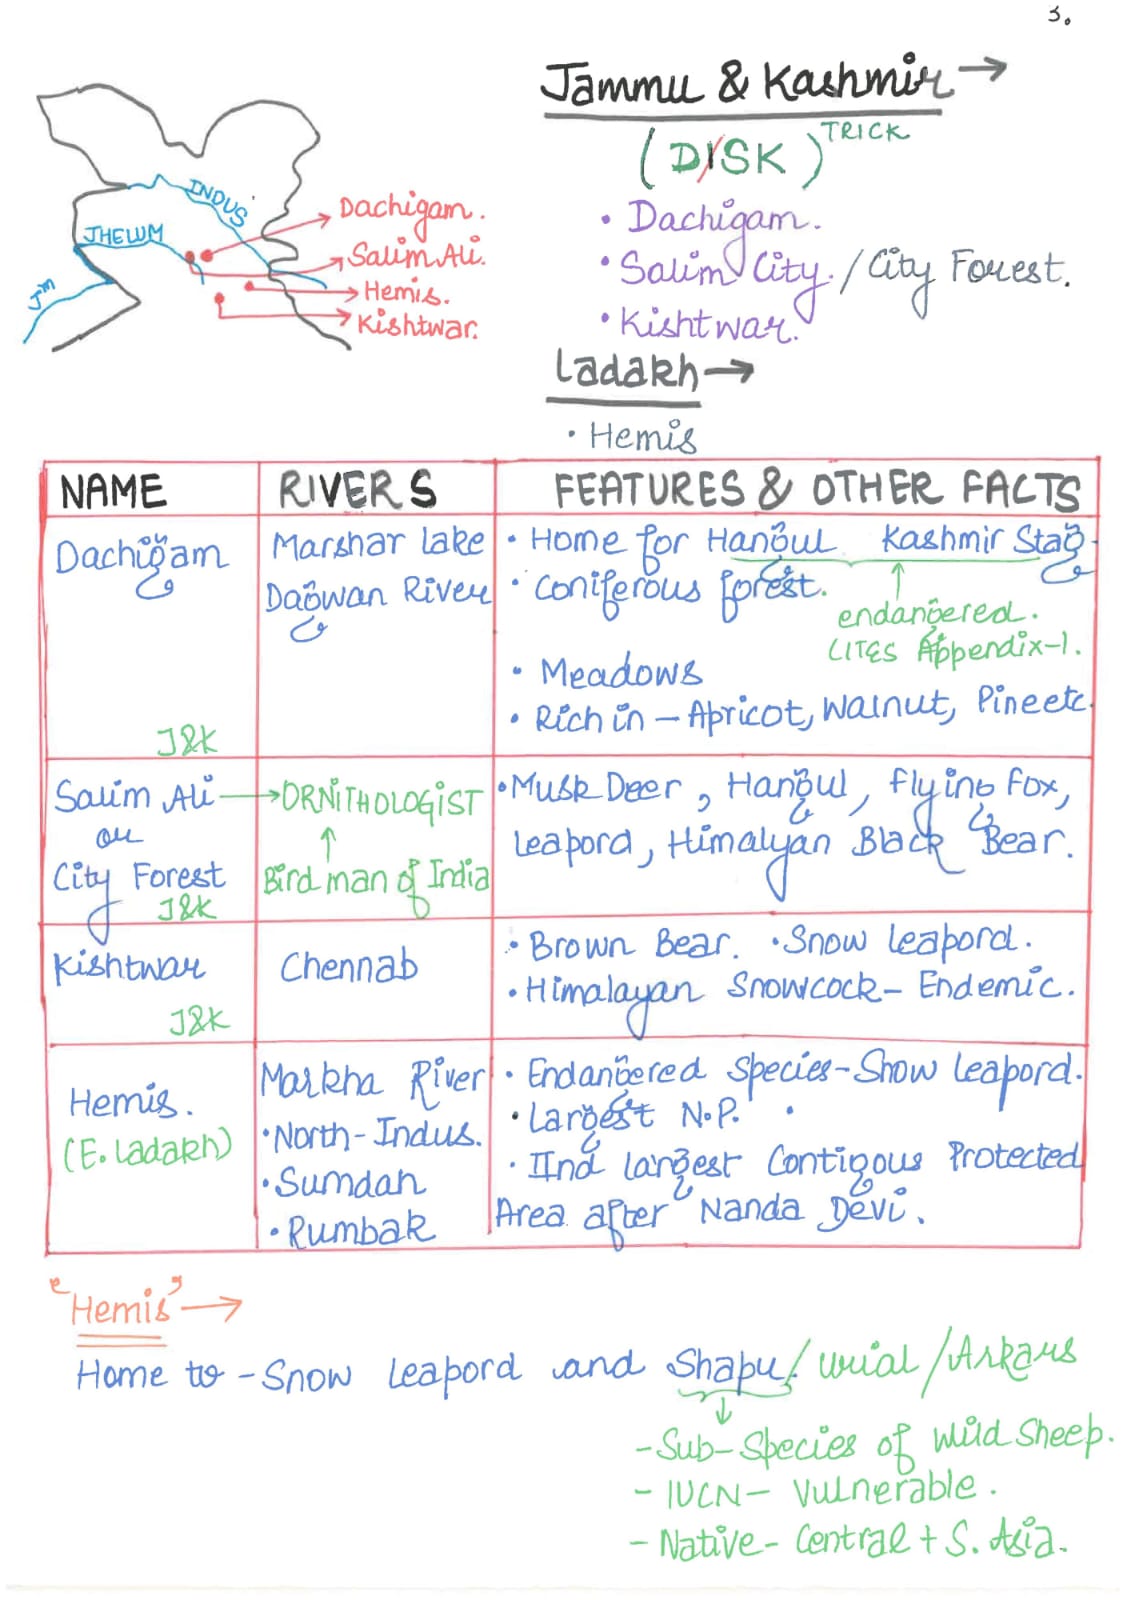 3.
Jammu & Kashmir →
(DISK) TRICK
• Dachigam.
• Salim City. / City Forest.
• Kishtwar.
Ladakh →
• Hemis
INDUS
JHELUM
Dachigam.
Salim Ali.
Hemis.
Kishtwar.
NAME
RIVERS
FEATURES & OTHER FACTS
Dachigam
J&K
Marshar lake
Dagwan River
• Home for Hangul Kashmir Stag.
• Coniferous forest.
endangered.
CITES Appendix-1.
• Meadows
• Rich in - Apricot, Walnut, Pine etc.
Salim Ali → ORNITHOLOGIST
or
City Forest
J&K
↑
Bird man of India
• Musk Deer, Hangul, flying Fox,
Leapord, Himalyan Black Bear.
Kishtwar
J&K
Chennab
• Brown Bear. • Snow leapord.
• Himalayan Snowcock - Endemic.
Hemis.
(E. Ladakh)
Markha River
• North-Indus.
• Sumdah
• Rumbak
• Endangered Species - Snow leapord.
• Largest N.P.
• IInd largest Contigous Protected
Area after Nanda Devi.
"Hemis" →
Home to - Snow leapord and Shapu / urial / Arkars
↓
- Sub-Species of Wild Sheep.
- IUCN - Vulnerable.
- Native - Central + S. Asia.